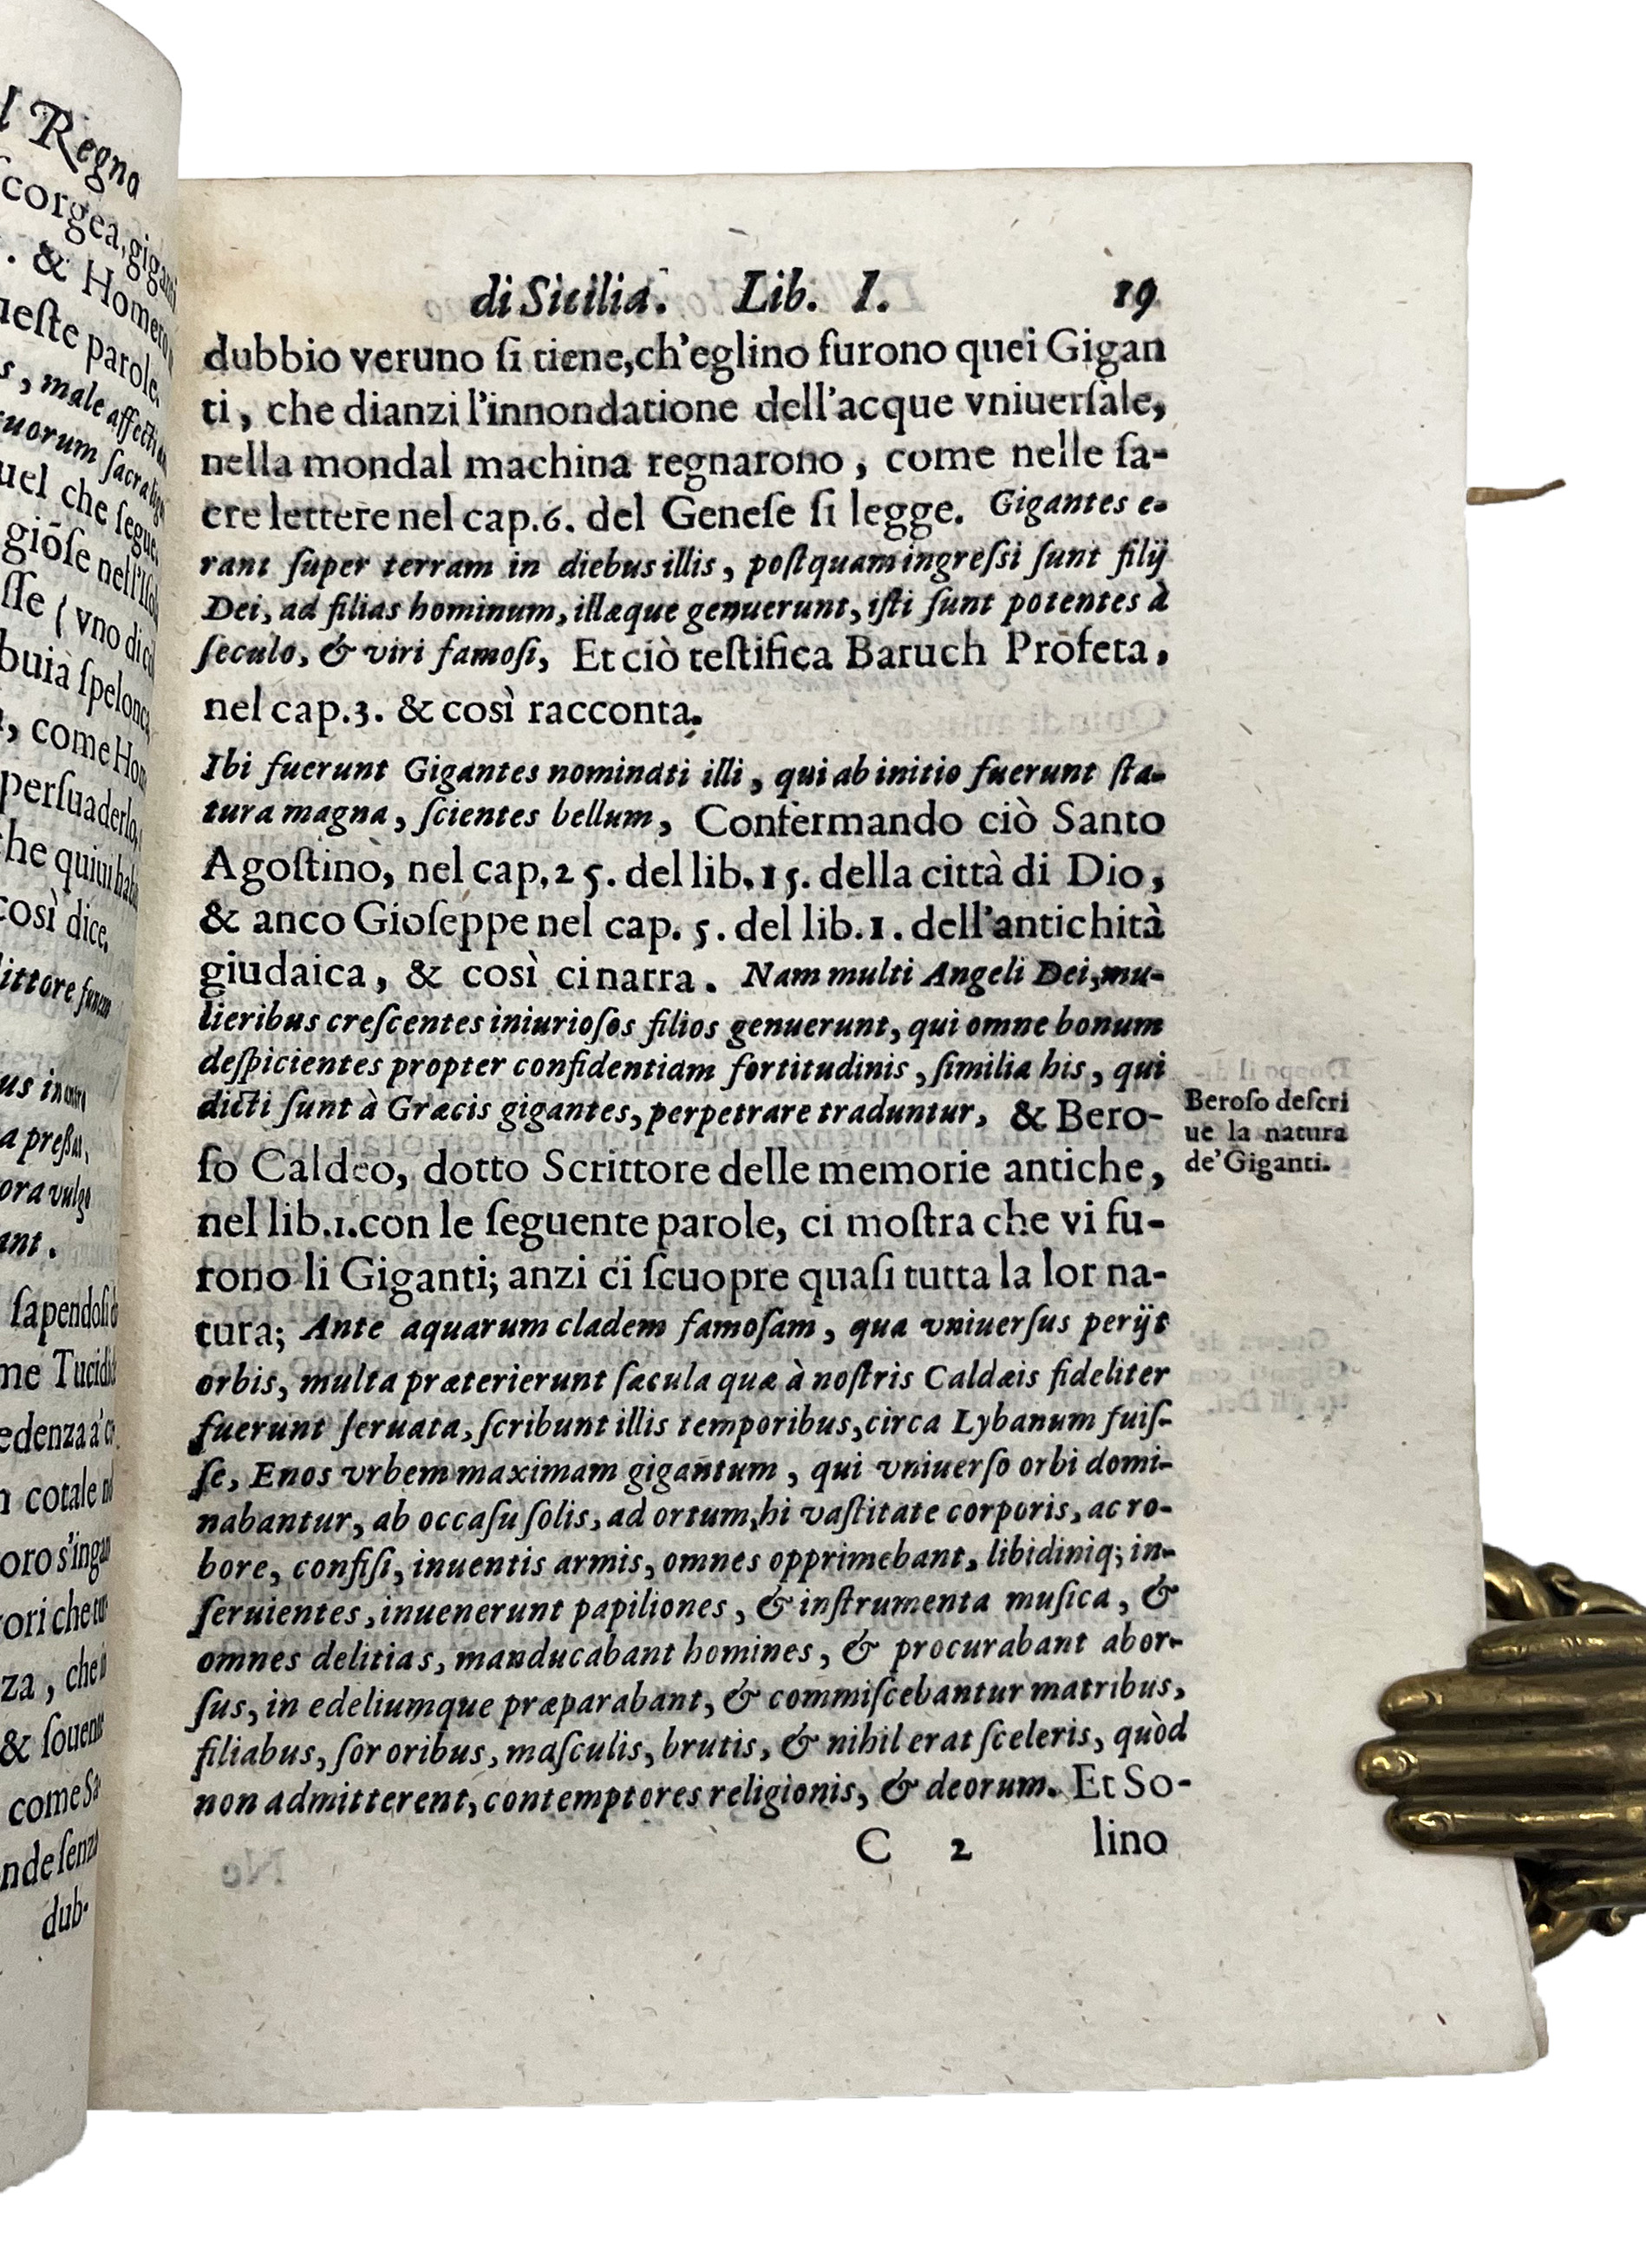 l Regno
scorgea, giganti
. & Homero
ueste parole.
s, male affecti
uorum sacra
uel che segue,
giōse nell'Isola
sse ( vno di
buia spelonca,
, come Hom
persuaderlo,
he quiui
così dice.
littore
us in
a pressa,
ora
ant.
sapendosi
me Tucidi
edenza a'
n cotale
oro s'ingan
ori che
za, che
& souente
come Sa
nde senza
dub-
di Sicilia. Lib. I. 19
dubbio veruno ſi tiene,ch'eglino furono quei Gigan
ti, che dianzi l'innondatione dell'acque vniuerſale,
nella mondal machina regnarono, come nelle ſa-
cre lettere nel cap.6. del Geneſe ſi legge. Gigantes e-
rant ſuper terram in diebus illis, poſtquam ingreſsi ſunt filij
Dei, ad filias hominum, illæque genuerunt, iſti ſunt potentes à
ſeculo, & viri famoſi, Et ciò teſtifica Baruch Profeta,
nel cap.3. & così racconta.
Ibi fuerunt Gigantes nominati illi, qui ab initio fuerunt ſta-
tura magna, ſcientes bellum, Confermando ciò Santo
Agoſtino, nel cap,25. del lib.15. della città di Dio,
& anco Gioſeppe nel cap. 5. del lib.1. dell'antichità
giudaica, & così ci narra. Nam multi Angeli Dei, mu-
lieribus creſcentes iniurioſos filios genuerunt, qui omne bonum
deſpicientes propter confidentiam fortitudinis, ſimilia his, qui
dicti ſunt à Græcis gigantes, perpetrare traduntur, & Bero-
ſo Caldeo, dotto Scrittore delle memorie antiche,
nel lib.1.con le ſeguente parole, ci moſtra che vi fu-
rono li Giganti; anzi ci ſcuopre quaſi tutta la lor na-
tura; Ante aquarum cladem famoſam, qua vniuerſus perijt
orbis, multa præterierunt ſæcula quæ à noſtris Caldæis fideliter
fuerunt ſeruata, ſcribunt illis temporibus, circa Lybanum fuiſ-
ſe, Enos vrbem maximam gigantum, qui vniuerſo orbi domi-
nabantur, ab occaſu ſolis, ad ortum, hi vaſtitate corporis, ac ro-
bore, confiſi, inuentis armis, omnes opprimebant, libidiniq; in-
ſeruientes, inuenerunt papiliones, & inſtrumenta muſica, &
omnes delitias, manducabant homines, & procurabant abor-
ſus, in edeliumque præparabant, & commiſcebantur matribus,
filiabus, ſororibus, maſculis, brutis, & nihil erat ſceleris, quòd
non admitterent, contemptores religionis, & deorum. Et So-
C 2 lino
Beroſo deſcri
ue la natura
de'Giganti.